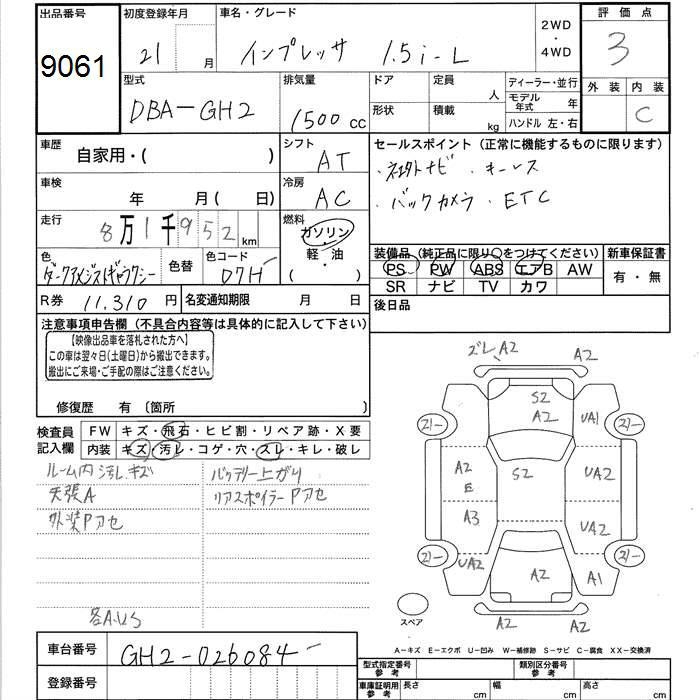 出品番号 初度登録年月 車名・グレード 2WD・4WD 評価点
9061 21 月 インプレッサ 1.5i-L 3
外装 内装 C
型式 DBA-GH2
排気量 1500 cc
ドア 定員 人 ディーラー・並行
形状 積載 kg モデル年式 年
ハンドル 左・右
車歴 自家用・( )
シフト AT
セールスポイント (正常に機能するものに限ります)
・社外ナビ ・キーレス
・バックカメラ ・ETC
車検 年 月( 日)
冷房 AC
走行 8万1千952km
燃料 ガソリン・軽油・( )
色 ダークアメジストギャラクシー 色替 色コード 07H
装備品 (純正品に限り○をつけてください) 新車保証書
PS PW ABS エアB AW 有・無
SR ナビ TV カワ
R券 11,310 円 名変通知期限 月 日
後日品
注意事項申告欄 (不具合内容等は具体的に記入して下さい)
【映像出品車を落札された方へ】
この車は翌々日(土曜日)から搬出できます。
搬出にご来場・ご手配の際はご注意ください。
修復歴 有 〔箇所 〕
検査員記入欄 FW キズ・飛石・ヒビ割・リペア跡・X要
内装 キズ・汚レ・コゲ・穴・スレ・キレ・破レ
ルーム内汚レ.キズ バッテリー上がり
天張A リアスポイラーPアセ
外装Pアセ
各A.US
ズレ、A2 A2
S2
A2
UA1
A2
E
S2
UA2
A3
UA2
UA2
A2
A1
A2 A2
スペア
A-キズ E-エクボ U-凹み W-補修跡 S-サビ C-腐食 XX-交換済
車台番号 GH2-026084
登録番号
型式指定番号 参考 類別区分番号 参考
車庫証明用 参考 長さ cm 幅 cm 高さ cm